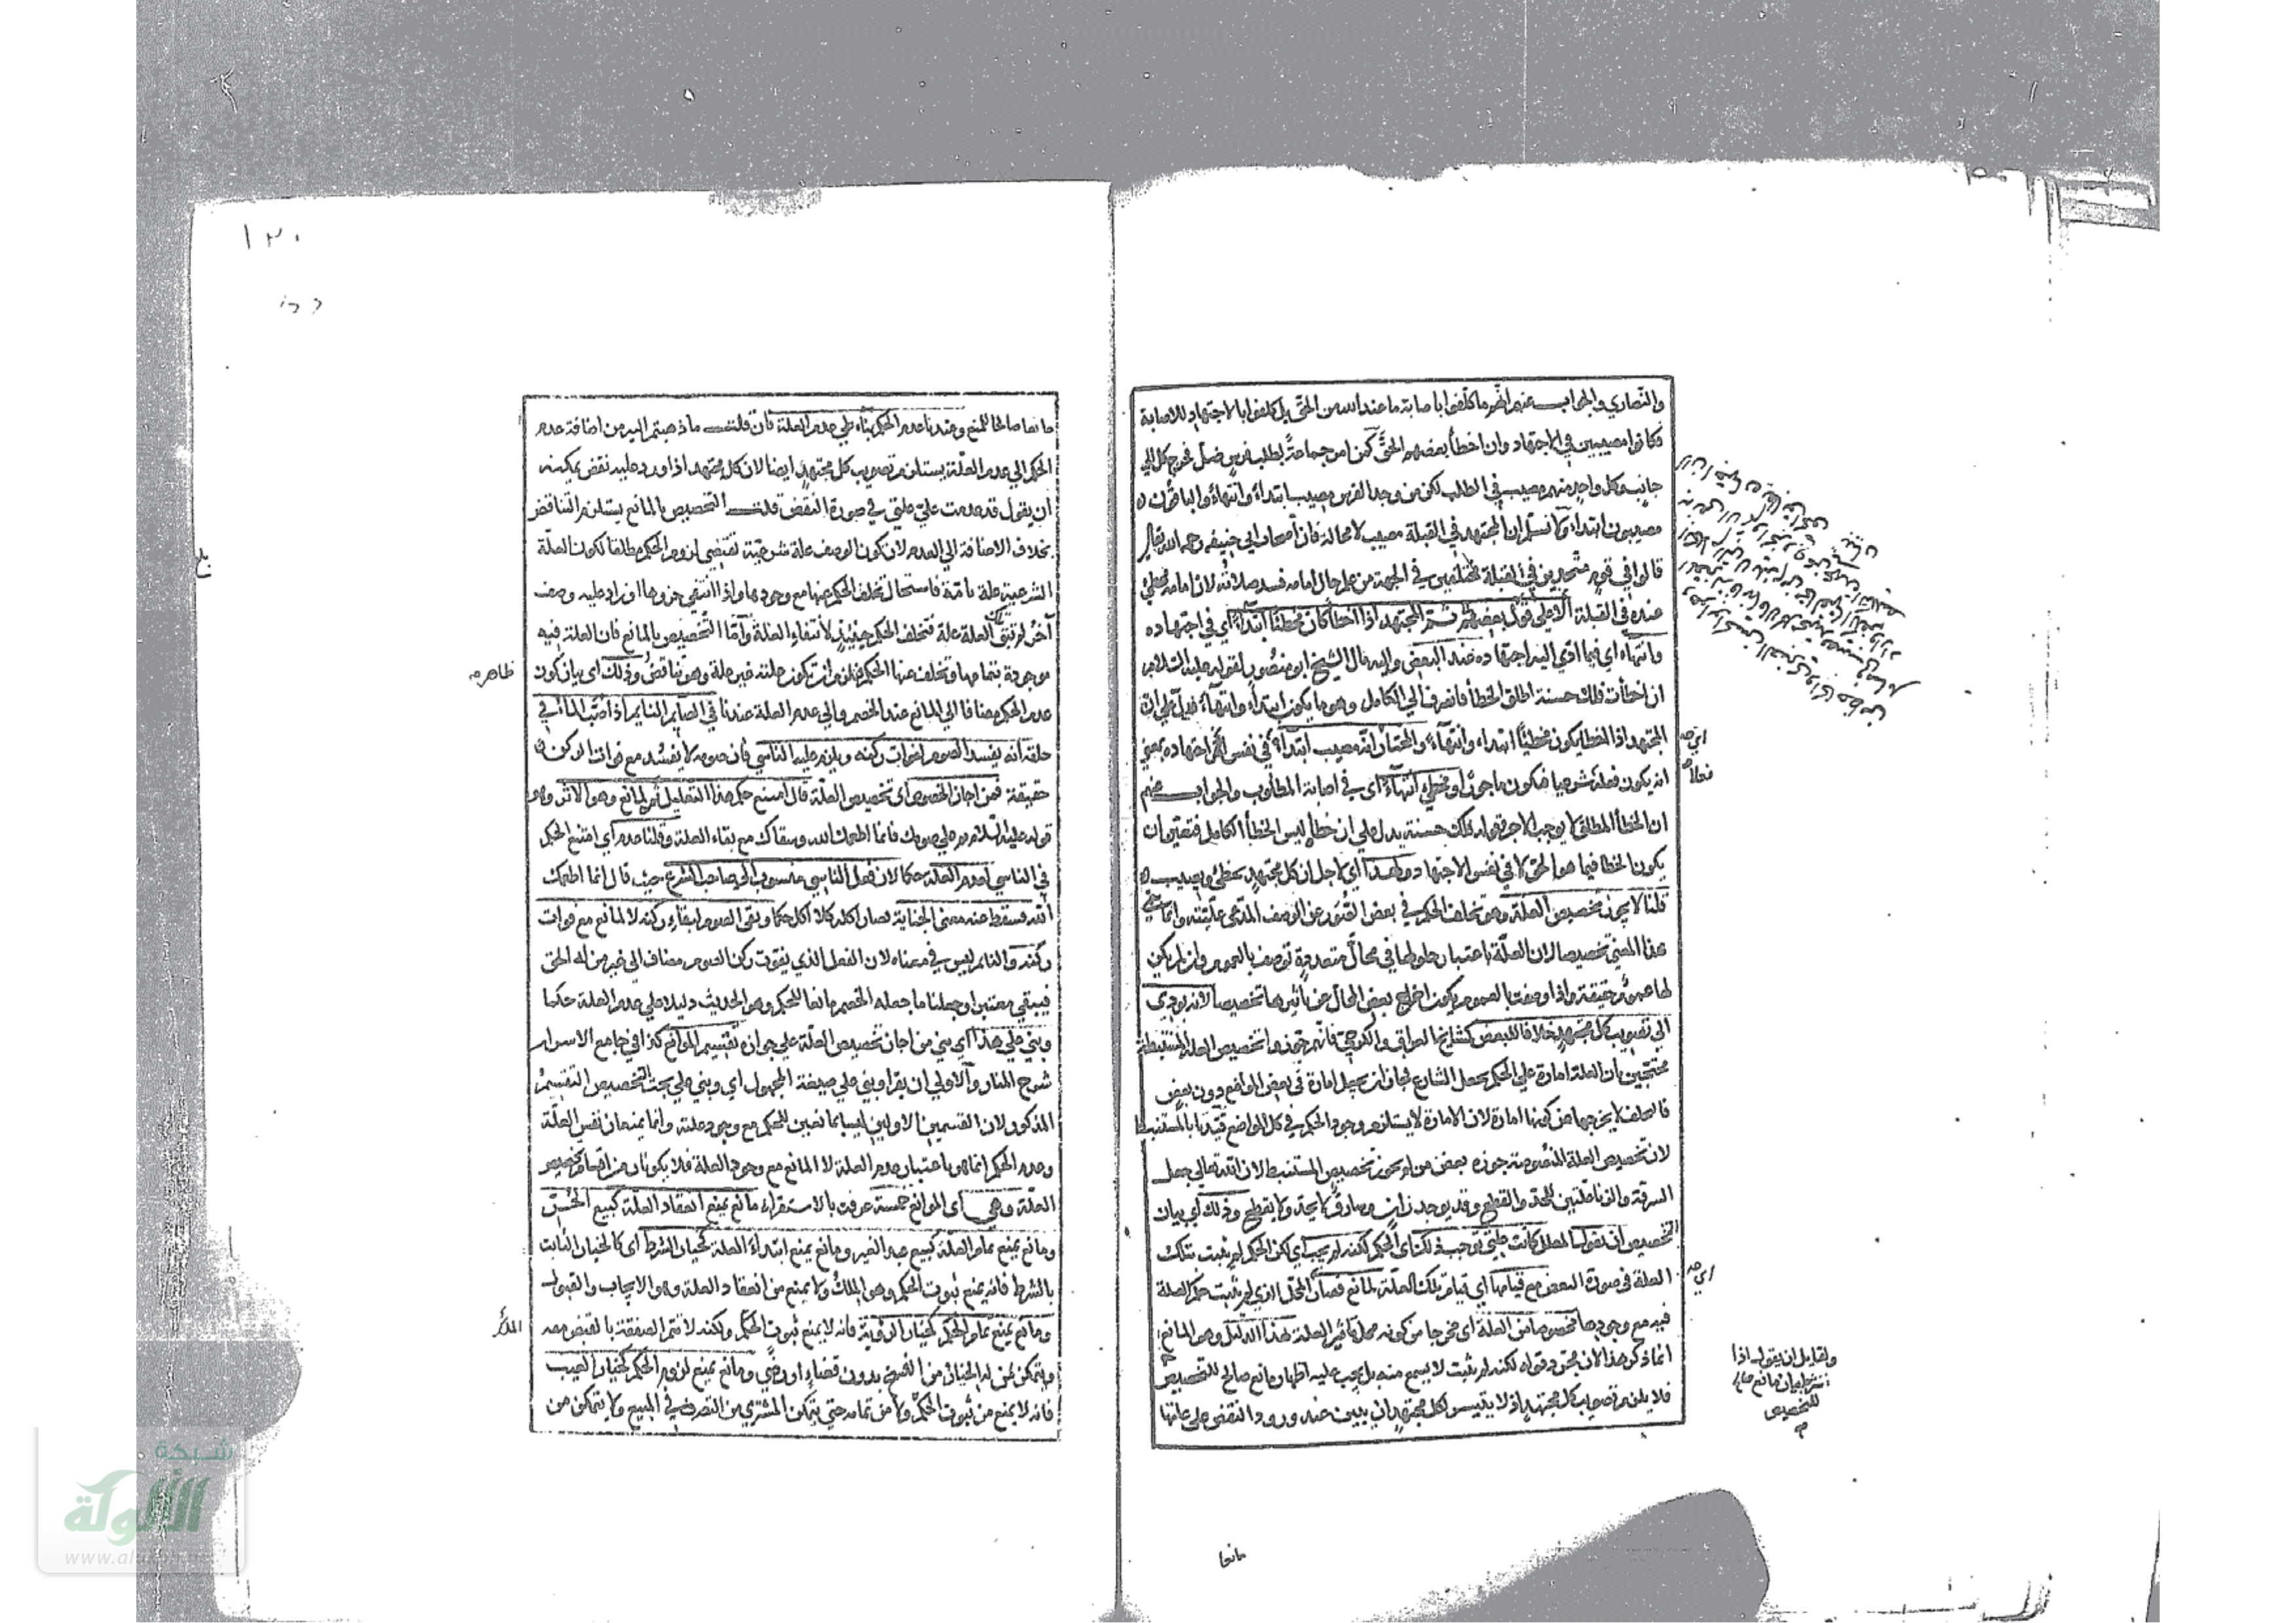 والنصارى والجواب عنه انهم ما كلفوا باصابة ما عند الله من الحق بل كلفوا بالاجتهاد للاصابة
فكانوا مصيبين في الاجتهاد وان اخطأ بعضهم الحق كمن امر جماعة بطلب فرس ضل فخرج كل الي
جانب وكل واحد منهم مصيب في الطلب لكن من وجد الفرس مصيب ابتداء وانتهاء والباقون
مصيبون ابتداء ولا نسلم ان المجتهد في القبلة مصيب لا محالة فان اصحاب ابي حنيفة رحمه الله تعالى
قالوا في قوم متحرين في القبلة مختلفين في الجهة من علم حال امامه فسد صلاته لان امامه مخطئ
عنده في القبلة ثم المجتهد اذا اخطأ كان مخطئا ابتداء اي في اجتهاده
وانتهاء اي فيما ادي اليه اجتهاده عند البعض واليه مال الشيخ ابو منصور لقوله عليه السلام
ان اخطأت فلك حسنة اطلق الخطأ فانصرف الي الكامل وهو ما يكون ابتداء وانتهاء فدل علي ان
المجتهد اذا اخطا يكون مخطئا ابتداء وانتهاء والمختار انه مصيب ابتداء في نفس اجتهاده بمعني
انه يكون فعله شرعيا فيكون ماجورا ومخطئ انتهاء اي في اصابة المطلوب والجواب عنهم
ان الخطأ المطلق لا يوجب الاجر فقوله فلك حسنة يدل علي ان خطأه ليس الخطأ الكامل فتعين ان
يكون الخطا فيما هو الحق لا في نفس الاجتهاد ولهذا اي لاجل ان كل مجتهد يخطئ ويصيب
قلنا لا يجوز تخصيص العلة وهو تخلف الحكم في بعض الصور عن الوصف المدعى عليته وانما سمي
هذا المعني تخصيصا لان العلة باعتبار حلولها في محال متعددة توصف بالعموم وان لم يكن
لها عموم حقيقة واذا وصفت بالعموم يكون اخراج بعض المحال عن تاثيرها تخصيصا لانه يودي
الي تصويب كل مجتهد خلافا للبعض كمشايخ العراق والكرخي فانهم جوزوا تخصيص العلة المستنبطة
محتجين بان العلة امارة علي الحكم بجعل الشارع فجاز ان يجعل امارة في بعض المواضع دون بعض
فالتخلف لا يخرجها عن كونها امارة لان الامارة لا يستلزم وجود الحكم في كل المواضع قيدنا بالمستنبطة
لان تخصيص العلة المنصوصة جوزه بعض من لم يجوز تخصيص المستنبط لان الله تعالي جعل
السرقة والزنا علتين للحد والقطع وقد يوجد زان وسارق لا يحد ولا يقطع وذلك اي بيان
التخصيص ان يقول المعلل كانت علتي توجب ذلك اي الحكم لكنه لم يجب اي لكن الحكم لم يثبت بتلك
العلة في صورة النقض مع قيامها اي قيام تلك العلة لمانع فصار المحل الذي لم يثبت حكم العلة
فيه مع وجودها مخصوصا من العلة اي مخرجا من كونه محل تاثير العلة بهذا الدليل وهو المانع
انما ذكر هذا لان مجرد قوله لكنه لم يثبت لا يسمع منه بل يجب عليه اظهار مانع صالح للتخصيص
فلا يلزم تصويب كل مجتهد اذ لا يتيسر لكل مجتهد ان يبين عند ورود النقض علي علتها
اي
فعله
اي
ولقايل ان يقول اذا
شرط بيان مانع صالح
للتخصيص
مانعا
١٣٠
مانعا صالحا للمنع وعندنا عدم الحكم بناء علي عدم العلة فان قلت ما ذهبتم اليه من اضافة عدم
الحكم الي عدم العلة يستلزم تصويب كل مجتهد ايضا لان كل مجتهد اذا ورد عليه نقض يمكنه
ان يقول قد عدمت علتي في صورة النقض قلت التخصيص بالمانع يستلزم التناقض
بخلاف الاضافة الي العدم لان كون الوصف علة شرعية تقتضي لزوم الحكم مطلقا لكون العلة
الشرعية علة تامة فاستحال تخلف الحكم عنها مع وجودها واذا انتفي جزوها او زاد عليه وصف
آخر لم تبق تلك العلة علة فتخلف الحكم حينئذ لانتفاء العلة وأما التخصيص بالمانع فان العلة فيه
موجودة بتمامها وتخلف عنها الحكم فلزم ان تكون علته غير علة وهو تناقض وذلك اي بيان كون
عدم الحكم مضافا الي المانع عند الخصم والي عدم العلة عندنا في الصايم النايم اذا صب الماء في
حلقه انه يفسد الصوم لفوات ركنه ويلزم عليه الناسي فان صومه لا يفسد مع فوات الركن
حقيقة فمن اجاز الخصوص اي تخصيص العلة قال امتنع حكم هذا التعليل ثم لمانع وهو الاثر وهو
قوله عليه السلام تم علي صومك فانما اطعمك الله وسقاك مع بقاء العلة وقلنا عدم اي امتنع الحكم
في الناسي لعدم العلة حكما لان فعل الناسي منسوب الي صاحب الشرع حيث قال انما اطعمك
الله فسقط عنه معني الجناية فصار اكله كلا اكل حكما وبقي الصوم لبقاء ركنه لا لمانع مع فوات
ركنه والنايم ليس في معناه لان الفعل الذي يفوت ركن الصوم مضاف الي غير من له الحق
فيبقي معتبرا وجعلنا ما جعله الخصم مانعا للحكم وهو الحديث دليلا علي عدم العلة حكما
وبني علي هذا اي بني من اجاز تخصيص العلة علي جوازه تقسيم الموانع كذا في جامع الاسرار
شرح المنار والاولي ان يقرا وبني علي صيغة المجهول اي وبني علي بحث التخصيص التقسيم
المذكور لان القسمين الاولين ليسا بمانعين للحكم مع وجود علته وانما يمنعان نفس العلة
وعدم الحكم انما هو باعتبار عدم العلة لا المانع مع وجود العلة فلا يكونان من اقسام تخصيص
العلة وهي اي الموانع خمسة عرفت بالاستقراء مانع يمنع انعقاد العلة كبيع الحر
ومانع يمنع تمام العلة كبيع عبد الغير ومانع يمنع ابتداء العلة كخيار الشرط اي كالخيار الثابت
بالشرط فانه يمنع ثبوت الحكم وهو الملك ولا يمنع من انعقاد العلة وهو الايجاب والقبول
ومانع يمنع تمام الحكم كخيار الروية فانه لا يمنع ثبوت الحكم ولكنه لا تتم الصفقة بالقبض معه
ويتمكن من له الخيار من الفسخ بدون قضاء او رضي ومانع يمنع لزوم الحكم كخيار العيب
فانه لا يمنع من ثبوت الحكم ولا من تمامه حتي يتمكن المشتري من التصرف في المبيع ولا يتمكن من
ظاهر
شبكة
الألوكة
www.alukah.net